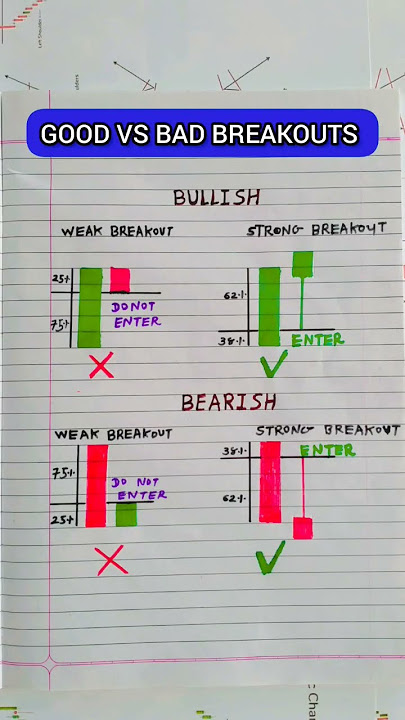 Left Shoulder
GOOD VS BAD BREAKOUTS
BULLISH
WEAK BREAKOUT
STRONG BREAKOUT
25%
DO NOT
ENTER
75%
62%
38%
ENTER
BEARISH
WEAK BREAKOUT
STRONG BREAKOUT
75%
DO NOT
ENTER
25%
38%
ENTER
62%